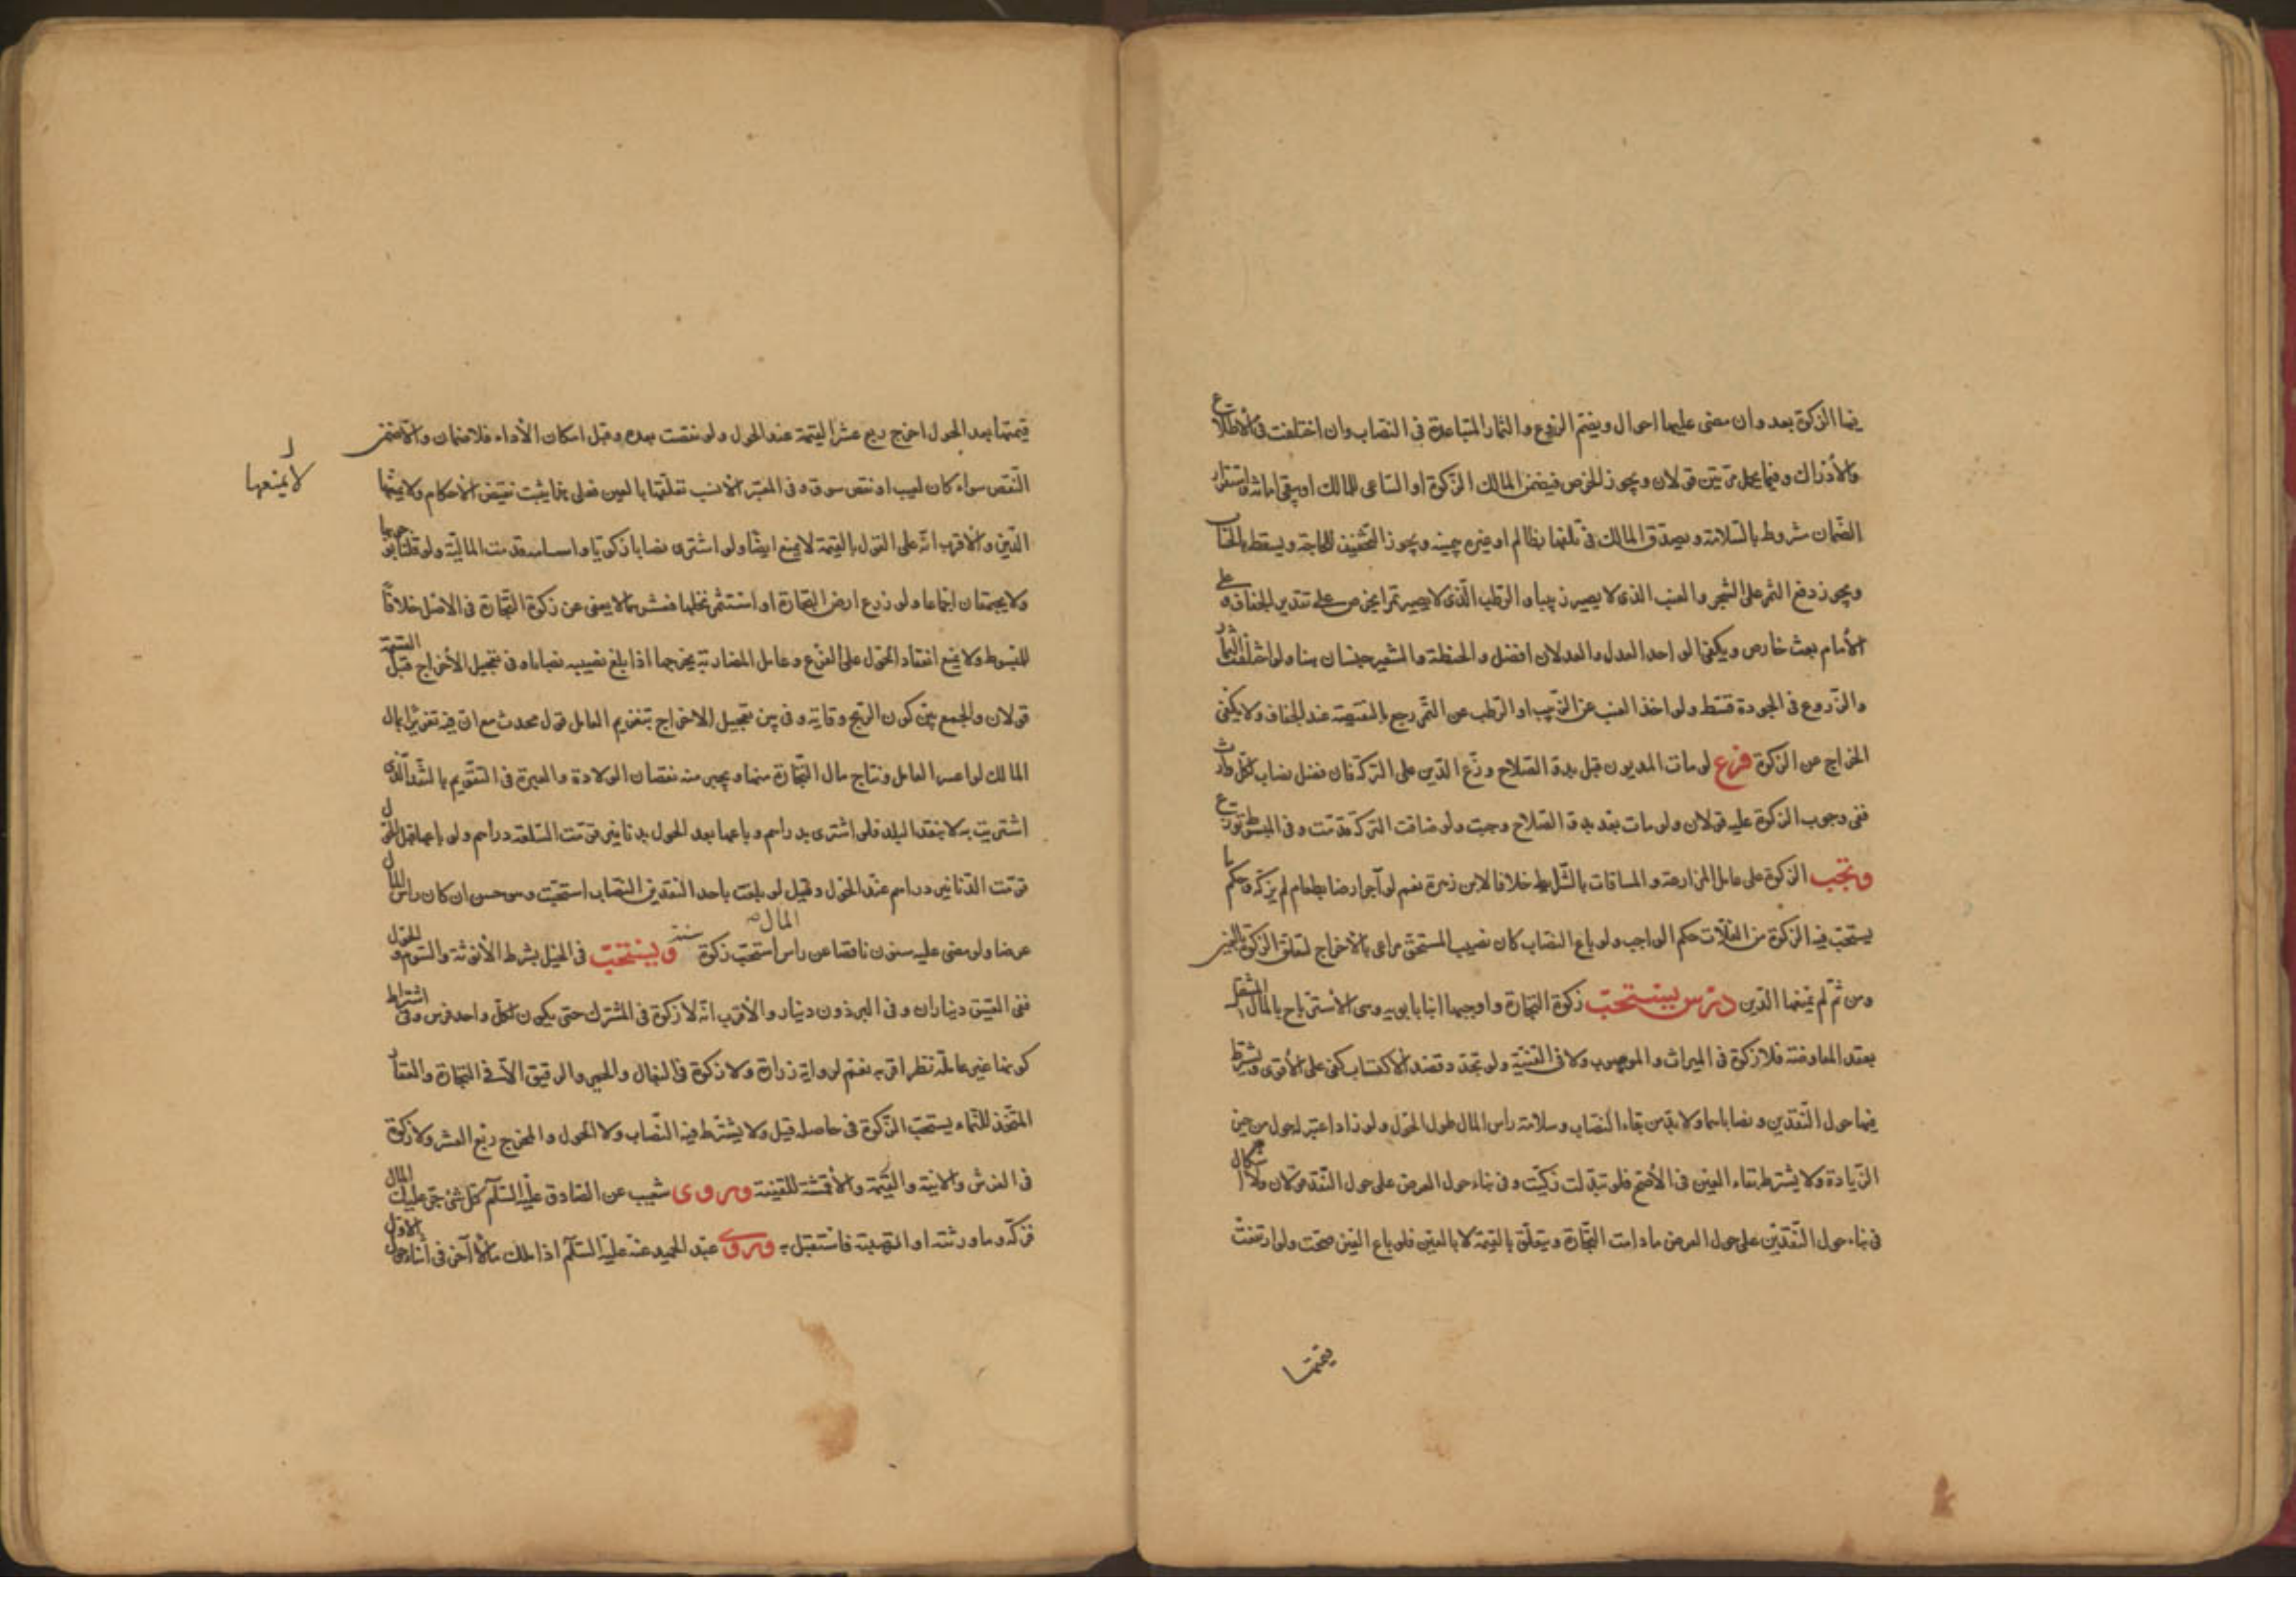 فيها الزكوة بعد وان مضى عليها احوال ويضم الزروع والثمار المتباعدة فى النصاب وان اختلفت فى الاطلاع
والأدراك وفيما يحمل مرتين قولان ويجوز الخرص فيضمن المالك الزكوة او الساعى للمالك او يبقى امانة واستقرار
الضمان مشروط بالسلامة ويصدق المالك فى تلفها بظالم او غيره بيمينه ويجوز التخفيف للحاجة ويسقط بالحساب
ويجوز دفع الثمر على الشجر والعنب الذى لا يصير زبيبا والرطب الذى لا يصير تمرا يخرص على تقدير الجفاف وعلى
الأمام بعث خارص ويكفى الواحد العدل والعدلان افضل والحنطة والشعير جنسان هنا ولو اختلفت الثمار
والزروع فى الجودة قسط ولو اخذ العنب عن الزبيب او الرطب عن التمر رجع بالنقيصة عند الجفاف ولا يكفى
الخراج عن الزكوة فرع لو مات المديون قبل بدو الصلاح وزع الدين على التركة فان فضل نصاب لكل وارث
ففى وجوب الزكوة عليه قولان ولو مات بعد بدو الصلاح وجبت ولو ضاقت التركة قدمت وفى المبسط توزع
وتجب الزكوة على عامل المزارعة والمساقات بالشرايط خلافا لابن زهرة نعم لو آجر ارضا بطعام لم يزكه وحكم ما
يستحب فيه الزكوة من الغلات حكم الواجب ولو باع النصاب كان نصيب المستحق مراعى بالاخراج لتعلق الزكوة بالعين
ومن ثم لم يمنعها الدين درس يستحب زكوة التجارة واوجبها ابنا بابويه وهى الاسترباح بالمال المنتقل
بعقد المعاوضة فلا زكوة فى الميراث والموهوب ولا فى القنية ولو تجدد قصد الاكتساب كفى على الأقوى ويشترط
فيها حول النقدين ونصاباهما ولا بد من بقاء النصاب وسلامة راس المال طول الحول ولو زاد اعتبر له حول من حين
الزيادة ولا يشترط بقاء العين فى الأصح فلو تبدلت زكيت وفى بناء حول العرض على حول النقد قولان ولا اشكال
فى بناء حول النقدين على حول العرض ما دامت التجارة ويتعلق بالقيمة لا بالعين فلو باع العين صحت ولو ارتفعت
قيمتها
قيمتها بعد الحول اخرج ربع عشر القيمة عند الحول ولو نقصت بعده وقبل امكان الأداء فلا ضمان والا ضمن
النقص سواء كان لعيب او نقص سوق وفى المعتبر الانسب تعلقها بالعين فعلى هذا يثبت نقيض الأحكام ولا يمنعها
لا يمنعها
الدين والاقرب انه على القول بالقيمة لا يمنع ايضا ولو اشترى نصابا زكويا قدمت المالية ولو قلنا بوجوبها
ولا يجتمعان اجماعا ولو زرع ارض التجارة او استثمر نخلها فعشرهما لا يغنى عن زكوة التجارة فى الاصل خلافا
للمبسوط ولا يمنع انعقاد الحول على الفرع وعامل المضاربة يخرجها اذا بلغ نصيبه نصابا وفى تعجيل الأخراج قبل القسمة
قولان والجمع بين كون الربح وقاية وبين تعجيل الاخراج بتغريم العامل قول محدث مع ان فيه تغريرا بمال
المالك لو اعسر العامل ونتاج مال التجارة منها ويجبر منه نقصان الولادة والعبرة فى التقويم بالنقد الذى
اشتريت به لا بنقد البلد فلو اشترى بدراهم وباعها بعد الحول بدنانير قومت السلعة دراهم ولو باعها قبل الحول
قومت الدنانير دراهم عند الحول وقيل لو بلغت باحد النقدين النصاب استحبت وهو حسن ان كان راس المال
عرضا ولو مضى عليه سنون ناقصا عن راس المال استحب زكوة سنة ويستحب فى الخيل بشرط الأنوثة والسوم والحول
ففى العتيق ديناران وفى البرذون دينار والأقرب انه لا زكوة فى المشترك حتى يكون لكل واحد فرس وفى اشتراط
كونها غير عاملة نظر اقربه نعم لرواية زرارة ولا زكوة فى البغال والحمير والرقيق الا فى التجارة والعقار
المتخذ للنماء يستحب الزكوة فى حاصله قيل ولا يشترط فيه النصاب ولا الحول والمخرج ربع العشر ولا زكوة
فى الفرش والانية والأقمشة للقنية وروى شعيب عن الصادق عليه السلم كل شئ جر عليك المال
فزكه وما ورثته او اتهبته فاستقبل به وروى عبد الحميد عنه عليه السلم اذا ملك مالا آخر فى أثناء حول الاول